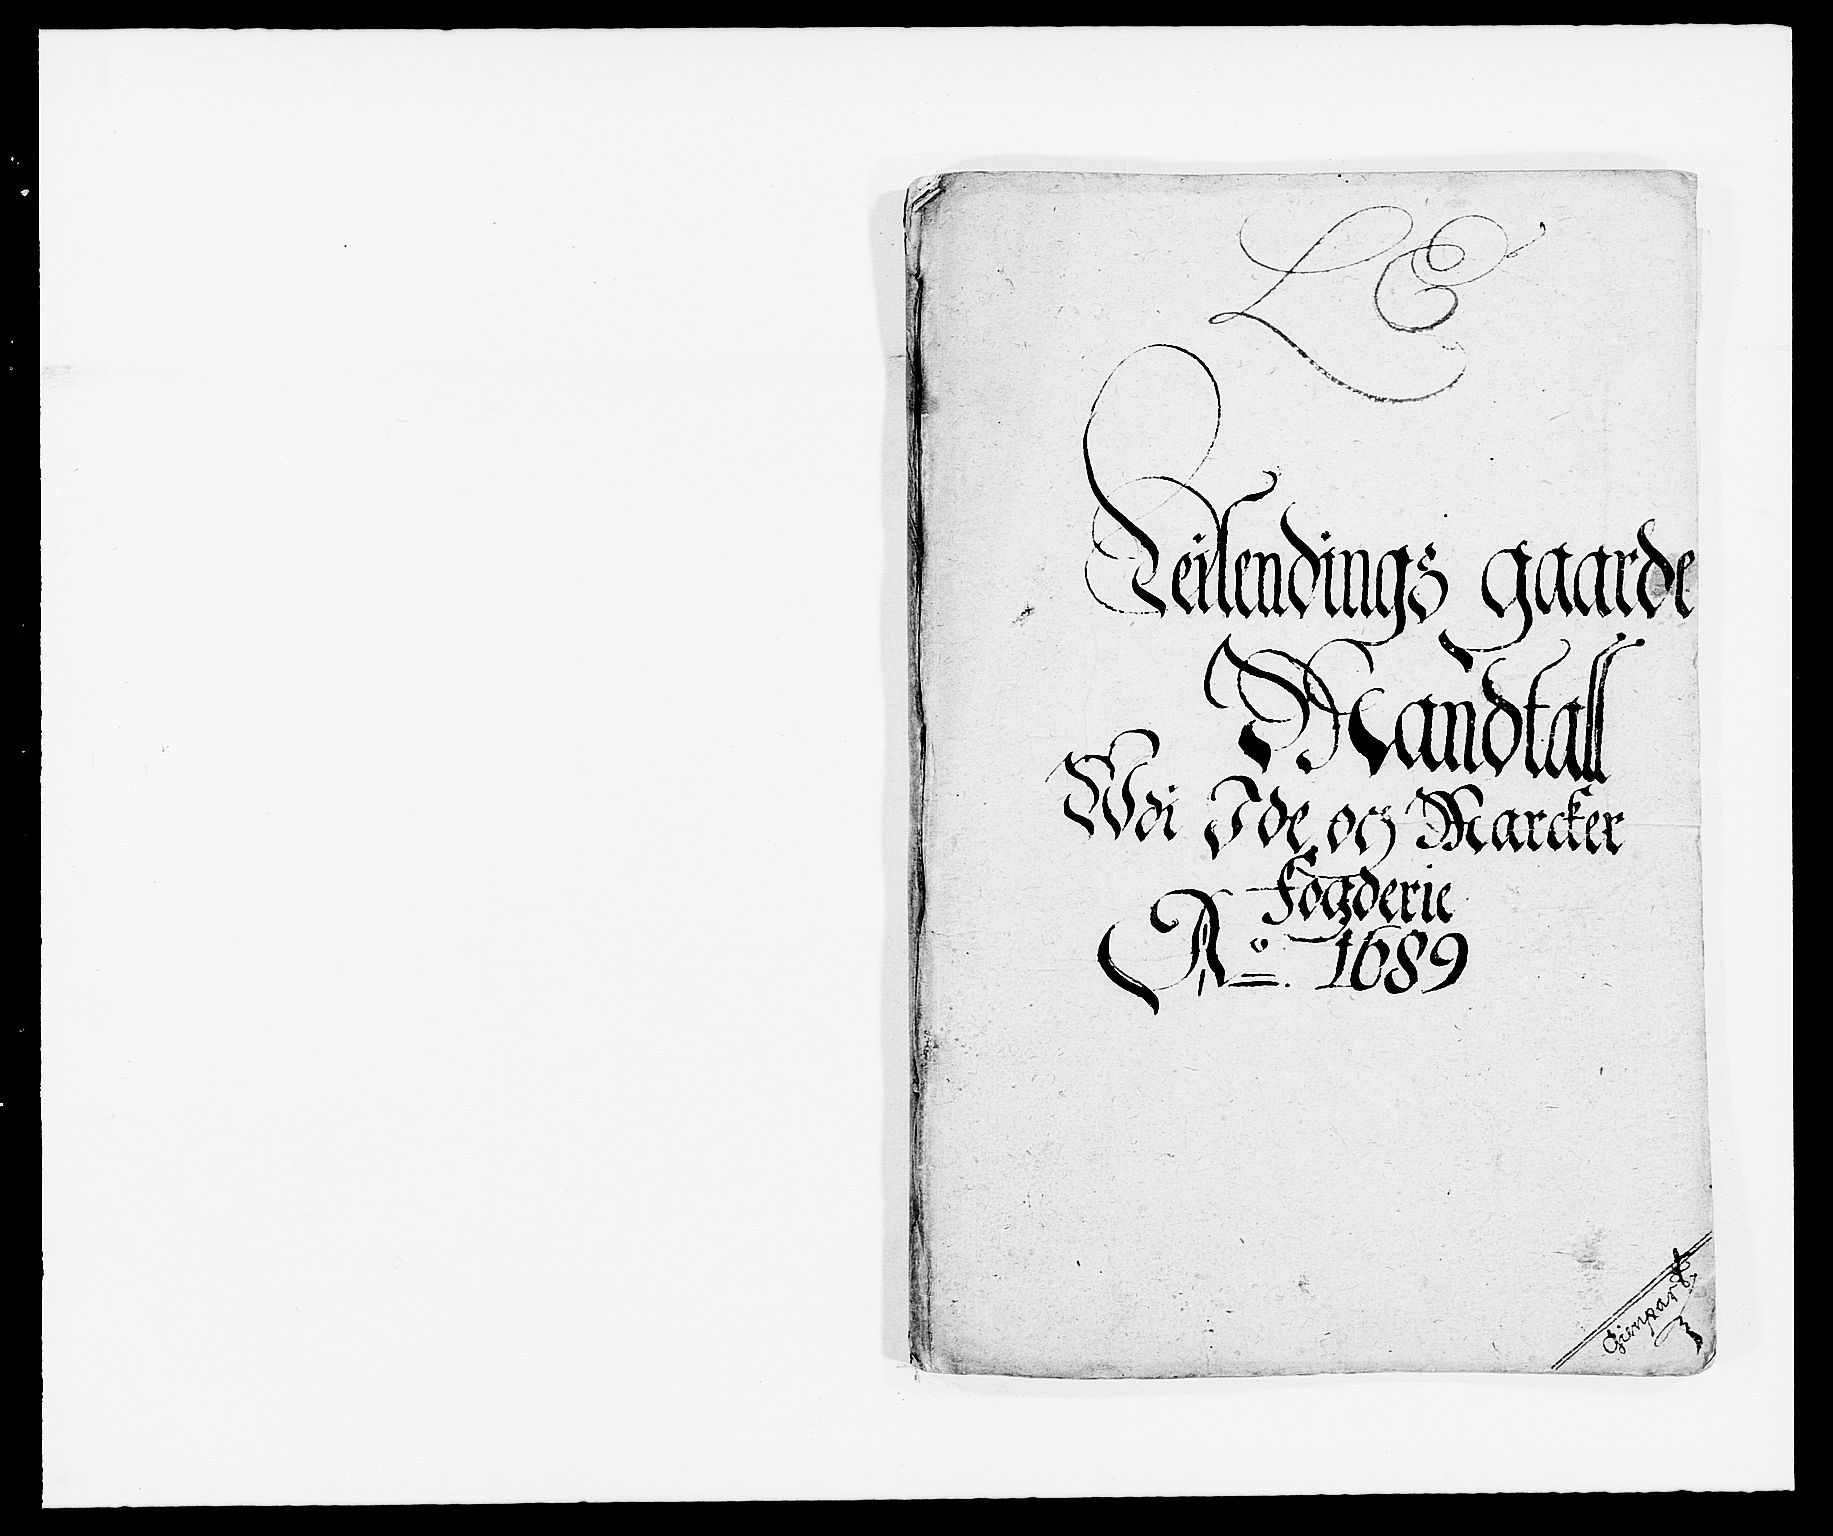 L E
Leilendings gaarde
Mandtall
Wdi Ide og Marcker
Fogderie
Ao 1689
Gienpart